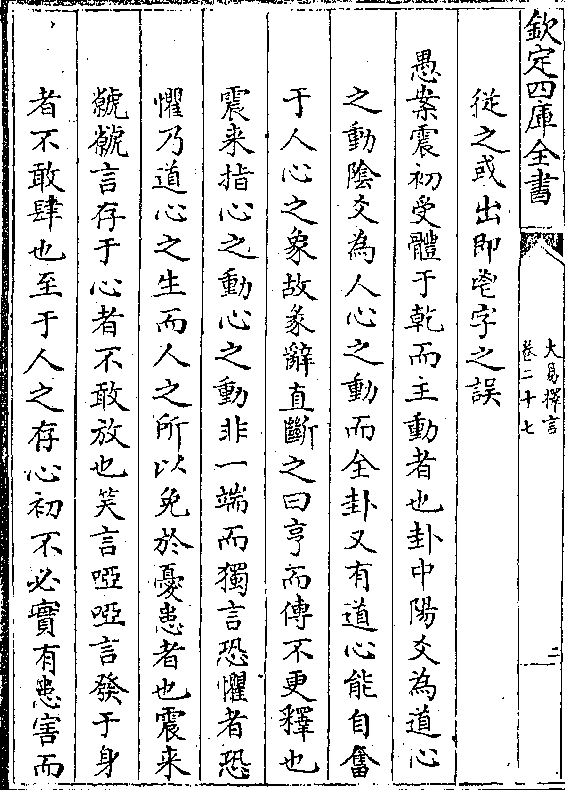 欽定四庫全書
大易擇言
卷二十七
二
從之或出即鬯字之誤
愚案震初受體于乾而主動者也卦中陽爻為道心
之動陰爻為人心之動而全卦又有道心能自奮
于人心之象故彖辭直斷之曰亨而傳不更釋也
震来指心之動心之動非一端而獨言恐懼者恐
懼乃道心之生而人之所以免於憂患者也震来
虩虩言存于心者不敢放也笑言啞啞言發于身
者不敢肆也至于人之存心初不必實有患害而